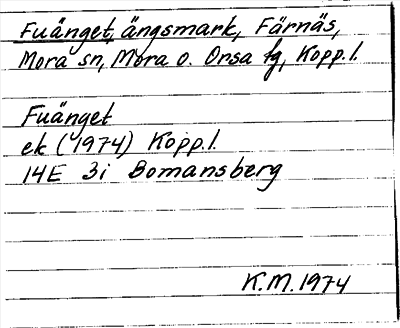 Fuänget, ängsmark, Färnäs,
Mora sn, Mora o. Orsa tg, Kopp.l.
Fuänget
ek (1974) Kopp.l.
14E 3i Bomansberg
K.M. 1974